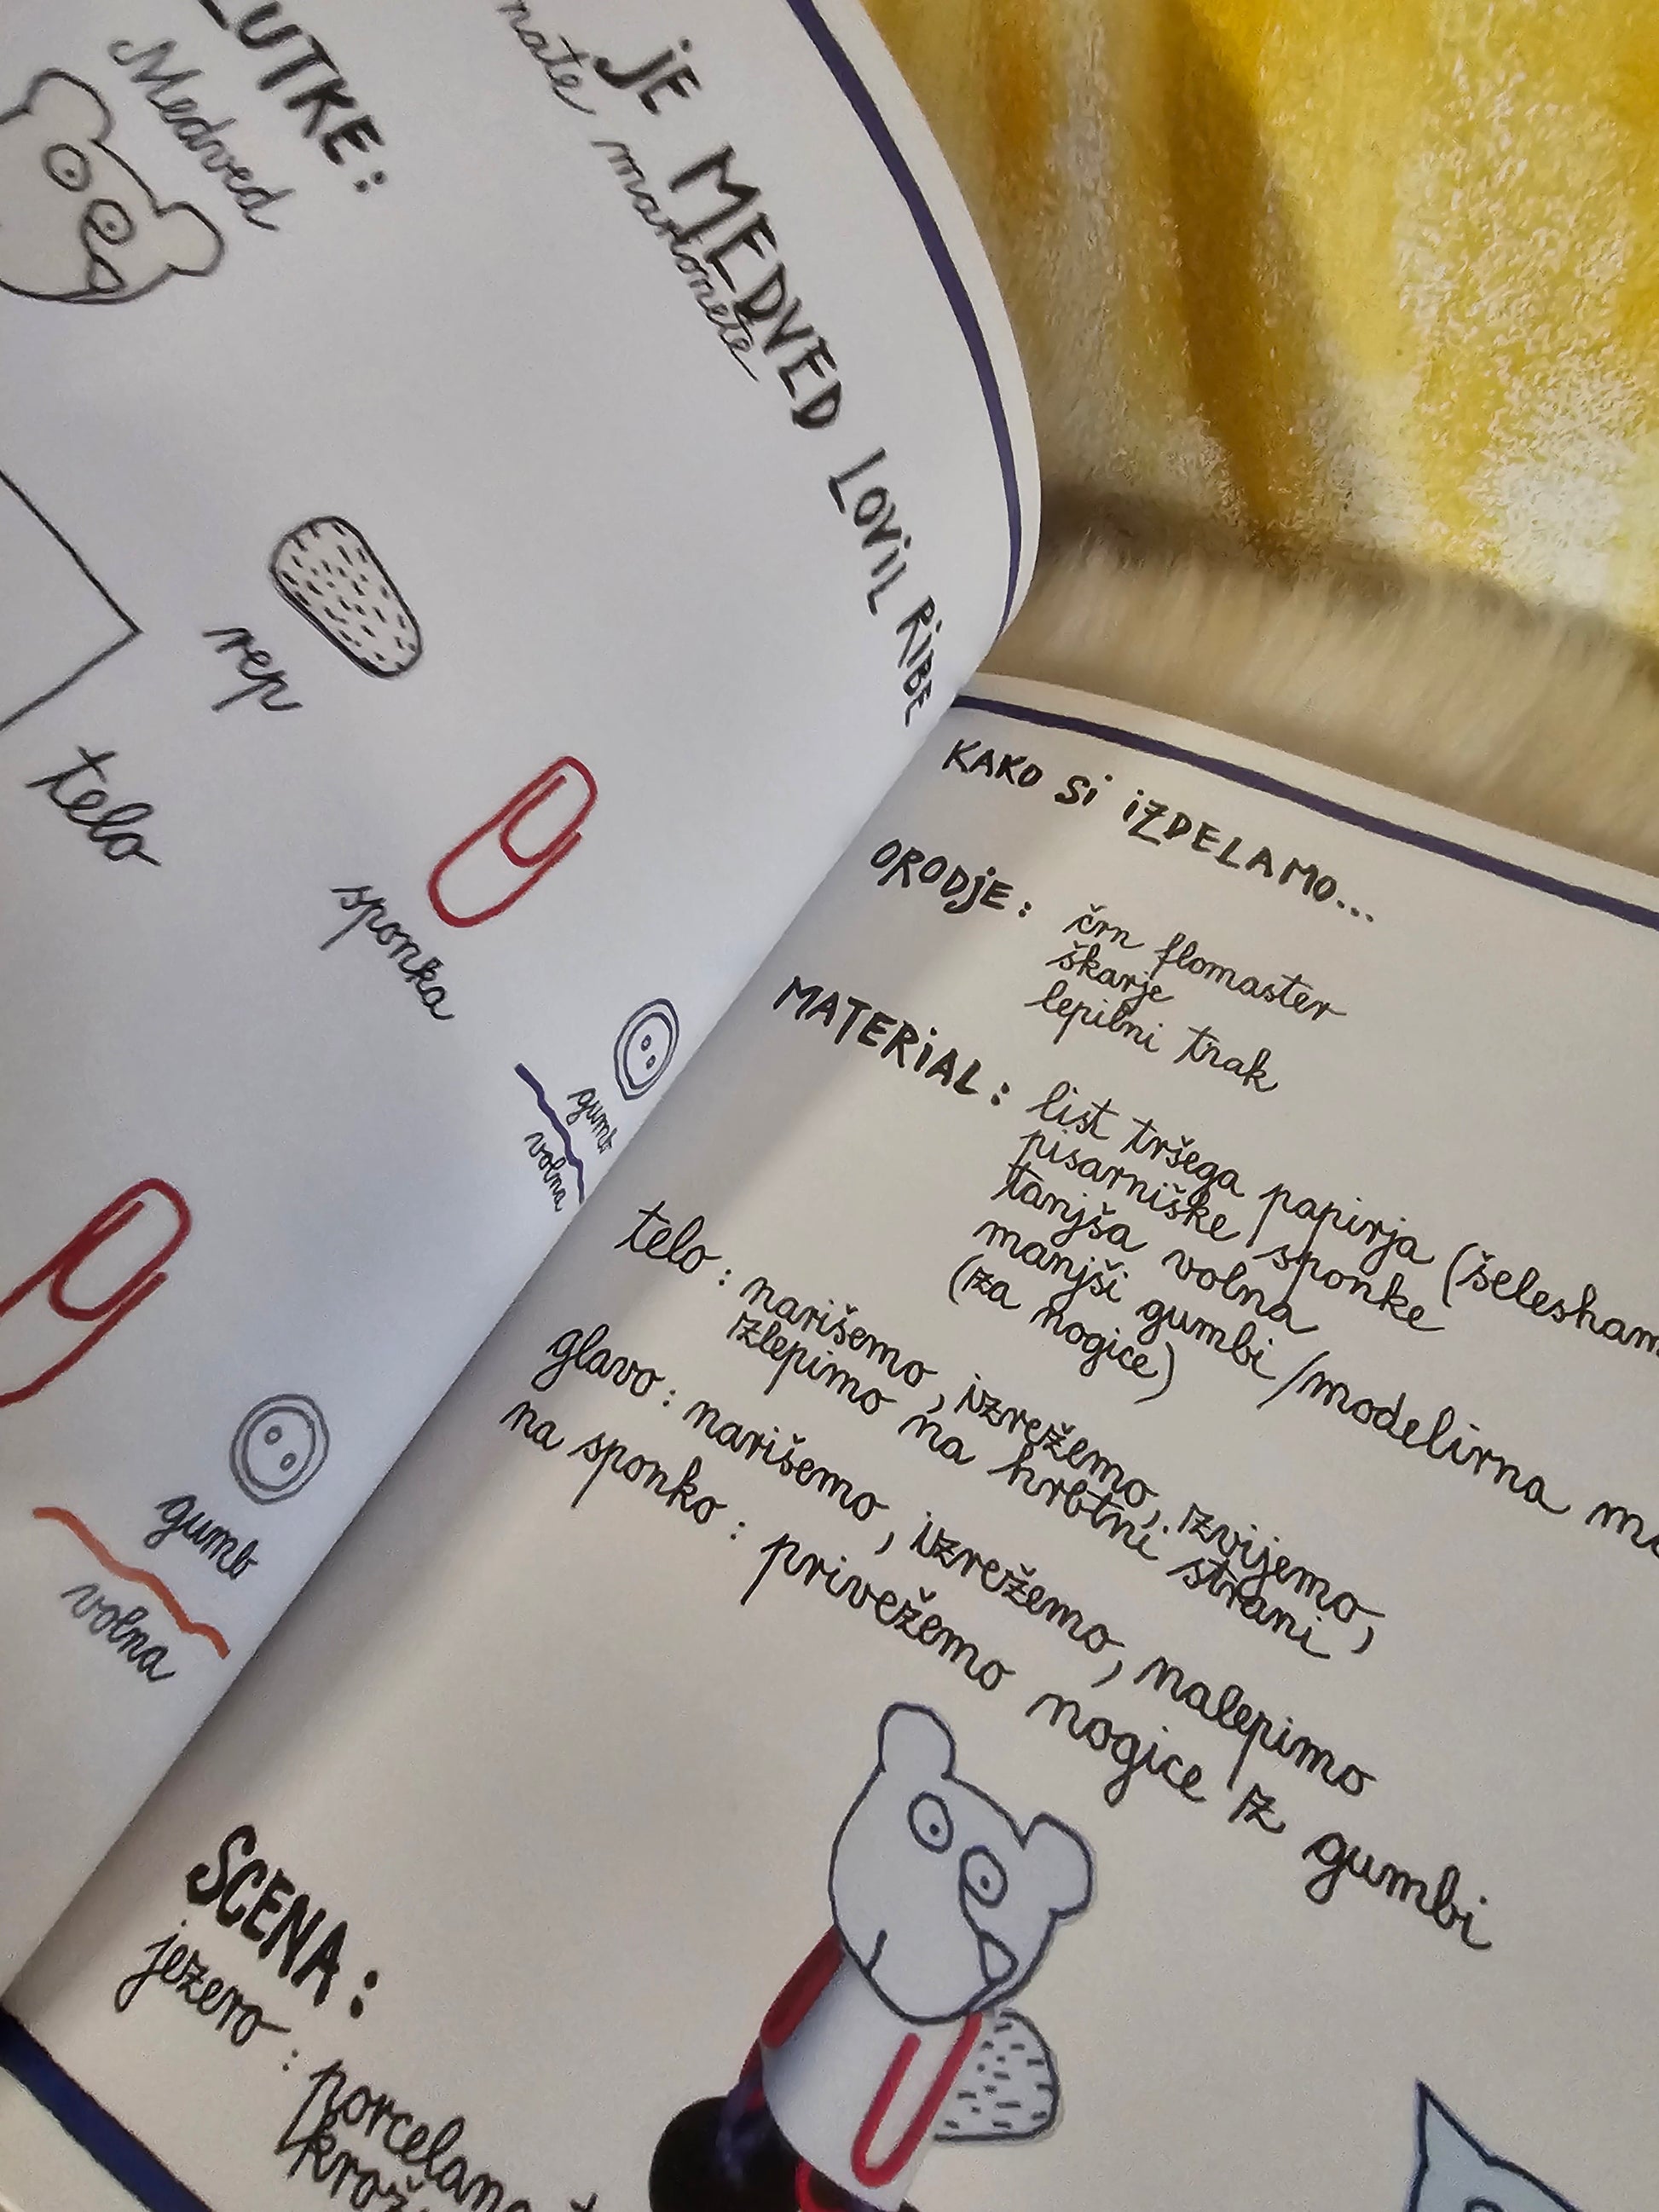 JE MEDVED LOVIL RIBE
marionete
LUTKE:
Medved
rep
telo
sponka
gumb
volna
gumb
volna
KAKO Si iZDELAMO...
ORODJE: črn flomaster
škarje
lepilni trak
MATERiAL: list tršega papirja
pisarniške sponke
tanjša volna
manjši gumbi/modelirna
(za nogice)
telo: narišemo, izrežemo, zvijemo,
zlepimo na hrbtni strani
glavo: narišemo, izrežemo, nalepimo
na sponko: privežemo nogice iz gumbi
SCENA:
jezero: